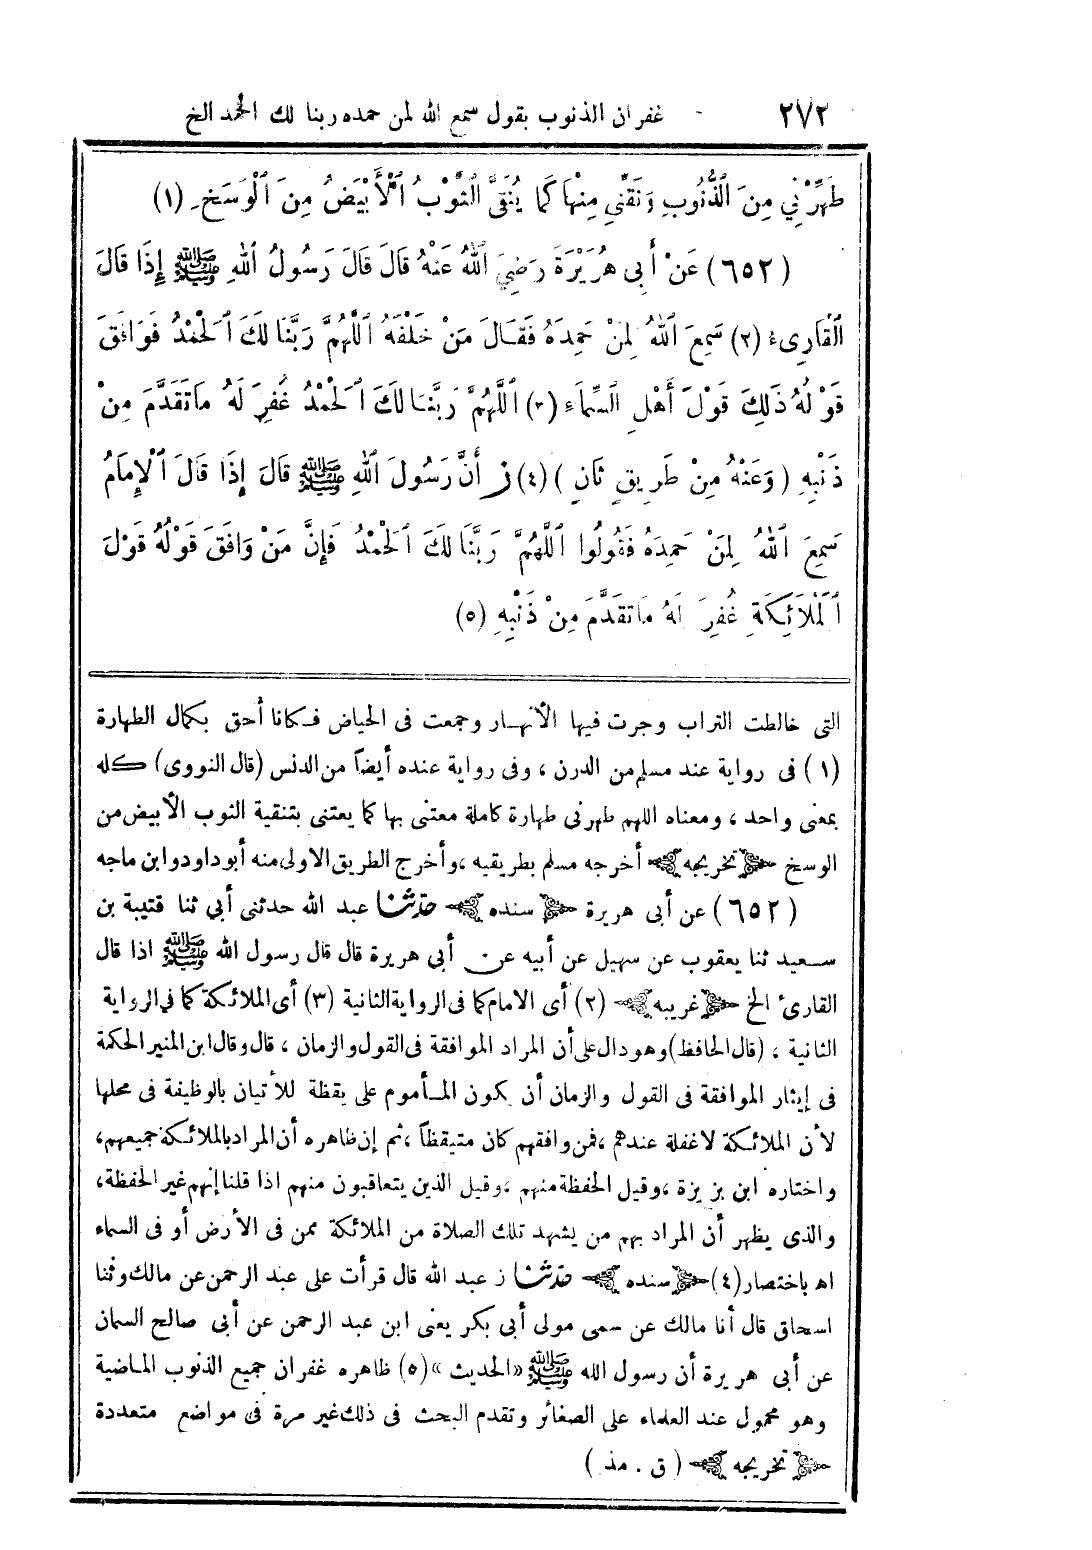 ٢٧٢ - غفران الذنوب بقول سمع الله لمن حمده ربنا لك الحمد الخ
طَهِّرْنِي مِنَ الذُّنُوبِ وَنَقِّنِي مِنْهَا كَمَا يُنَقَّى الثَّوْبُ الْأَبْيَضُ مِنَ الْوَسَخِ (١)
(٦٥٢) عَنْ أَبِي هُرَيْرَةَ رَضِيَ اللهُ عَنْهُ قَالَ قَالَ رَسُولُ اللهِ ﷺ إِذَا قَالَ
الْقَارِئُ (٢) سَمِعَ اللهُ لِمَنْ حَمِدَهُ فَقَالَ مَنْ خَلْفَهُ اللَّهُمَّ رَبَّنَا لَكَ الْحَمْدُ فَوَافَقَ
قَوْلُهُ ذَلِكَ قَوْلَ أَهْلِ السَّمَاءِ (٣) اللَّهُمَّ رَبَّنَا لَكَ الْحَمْدُ غُفِرَ لَهُ مَا تَقَدَّمَ مِنْ
ذَنْبِهِ (وَعَنْهُ مِنْ طَرِيقٍ ثَانٍ) (٤) ز أَنَّ رَسُولَ اللهِ ﷺ قَالَ إِذَا قَالَ الْإِمَامُ
سَمِعَ اللهُ لِمَنْ حَمِدَهُ فَقُولُوا اللَّهُمَّ رَبَّنَا لَكَ الْحَمْدُ فَإِنَّ مَنْ وَافَقَ قَوْلُهُ قَوْلَ
الْمَلَائِكَةِ غُفِرَ لَهُ مَا تَقَدَّمَ مِنْ ذَنْبِهِ (٥)
التى خالطت التراب وجرت فيها الأنهار وجمعت فى الحياض فكانا أحق بكمال الطهارة
(١) فى رواية عند مسلم من الدرن ، وفى رواية عنده أيضاً من الدنس (قال النووى) كله
بمعنى واحد ، ومعناه اللهم طهرنى طهارة كاملة معتنى بها كما يعتنى بتنقية الثوب الأبيض من
الوسخ ﴿تخريجه﴾ أخرجه مسلم بطريقيه ، وأخرج الطريق الاولى منه أبو داود وابن ماجه
(٦٥٢) عن أبى هريرة ﴿سنده﴾ حدثنا عبد الله حدثنى أبي ثنا قتيبة بن
سعيد ثنا يعقوب عن سهيل عن أبيه عن أبى هريرة قال قال رسول الله ﷺ اذا قال
القارئ الخ ﴿غريبه﴾ (٢) أى الامام كما فى الرواية الثانية (٣) أى الملائكة كما فى الرواية
الثانية ، (قال الحافظ) وهو دال على أن المراد الموافقة فى القول والزمان ، قال وقال ابن المنير الحكمة
فى إيثار الموافقة فى القول والزمان أن يكون المأموم على يقظة للأتيان بالوظيفة فى محلها
لأن الملائكة لا غفلة عندهم ، فمن وافقهم كان متيقظاً ، ثم إن ظاهره أن المراد بالملائكة جميعهم ،
واختاره ابن بزيزة ، وقيل الحفظة منهم ، وقيل الذين يتعاقبون منهم اذا قلنا إنهم غير الحفظة ،
والذى يظهر أن المراد بهم من يشهد تلك الصلاة من الملائكة ممن فى الأرض أو فى السماء
اه باختصار (٤) ﴿سنده﴾ حدثنا ز عبد الله قال قرأت على عبد الرحمن عن مالك وثنا
اسحاق قال أنا مالك عن سمى مولى أبى بكر يعنى ابن عبد الرحمن عن أبى صالح السمان
عن أبى هريرة أن رسول الله ﷺ «الحديث» (٥) ظاهره غفران جميع الذنوب الماضية
وهو محمول عند العلماء على الصغائر وتقدم البحث فى ذلك غير مرة فى مواضع متعددة
﴿تخريجه﴾ (ق . مذ)